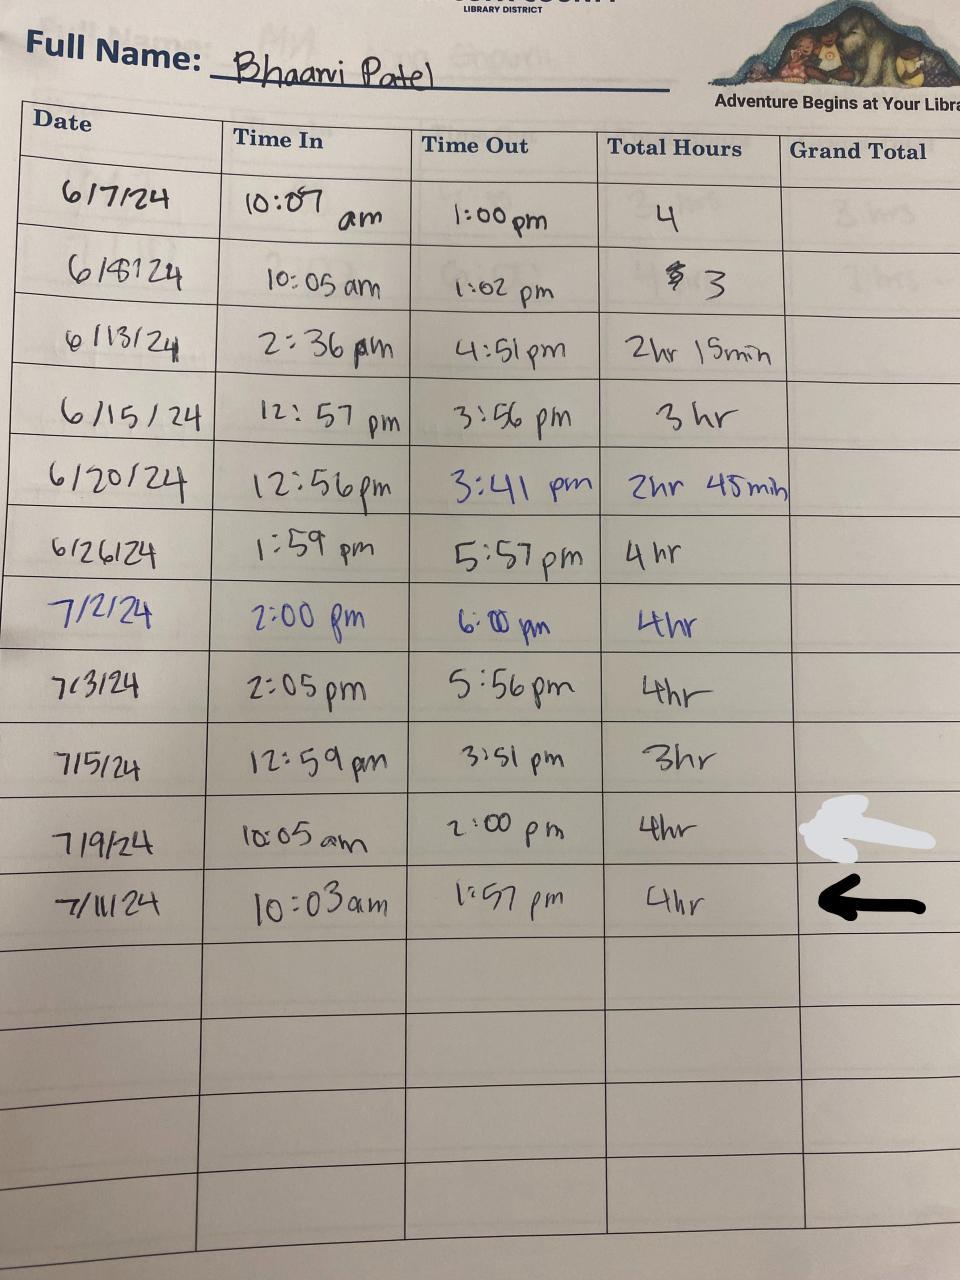 LIBRARY DISTRICT
Full Name: Bhaarvi Patel
Adventure Begins at Your Libra
Date Time In Time Out Total Hours Grand Total
6/7/24 10:07 am 1:00 pm 4
6/8/24 10:05 am 1:02 pm 3
6/13/24 2:36 pm 4:51 pm 2hr 15min
6/15/24 12:57 pm 3:56 pm 3 hr
6/20/24 12:56 pm 3:41 pm 2hr 45min
6/26/24 1:59 pm 5:57 pm 4 hr
7/2/24 2:00 pm 6:00 pm 4hr
7/3/24 2:05 pm 5:56 pm 4hr
7/5/24 12:59 pm 3:51 pm 3hr
7/9/24 10:05 am 2:00 pm 4hr
7/11/24 10:03 am 1:57 pm 4hr